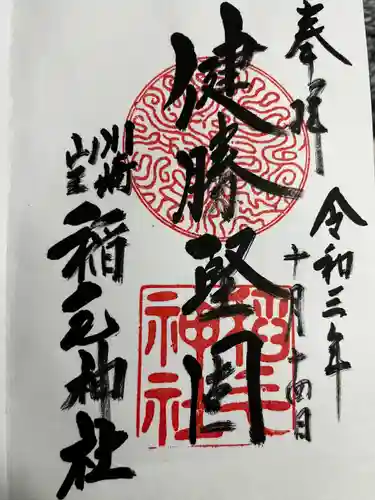 奉拝
令和三年
十月十四日
健勝堅固
川崎
山王
稲毛神社
稲毛神社